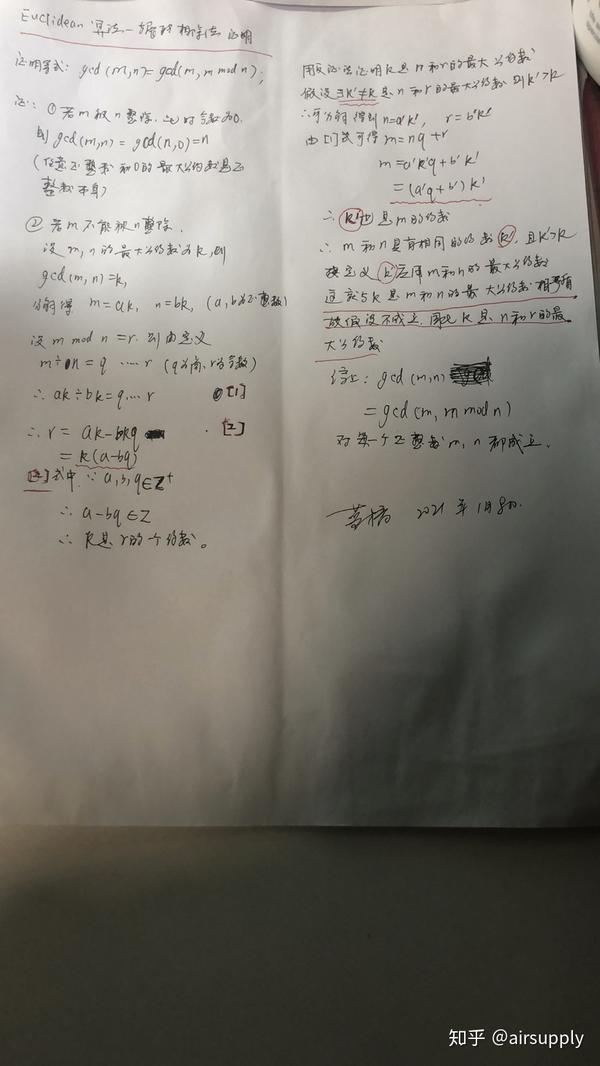 Euclidean 算法—辗转相除法 证明
证明等式: gcd (m,n) = gcd (m, m mod n);
证: ① 若 m 被 n 整除, 此时余数为0.
则 gcd (m,n) = gcd (n,0) = n
(任意正整数和0的最大公约数是正
整数本身)
② 若 m 不能被 n 整除.
设 m, n 的最大公约数为 k, 则
gcd (m,n) = k,
分解得 m = ak, n = bk, (a, b为正整数)
设 m mod n = r. 则由定义
m ÷ n = q ····· r (q为商, r为余数)
∴ ak ÷ bk = q···· r [1]
∴ r = ak - bkq [2]
= k (a-bq)
[2] 式中, ∵ a, b, q ∈ Z⁺
∴ a-bq ∈ Z
∴ k是 r 的一个约数。
用反证法证明 k 是 n 和 r 的最大公约数
假设 ∃ k' ≠ k 是 n 和 r 的最大公约数 则 k' > k
∴ 可分解得到 n = a'k', r = b'k'
由[1]式可得 m = nq + r
m = a'k'q + b'k'
= (a'q + b') k'
∴ k'也是m的约数
∴ m 和 n 具有相同的约数 k', 且 k' > k
按定义 k'应为 m 和 n 的最大公约数
这就与 k 是 m 和 n 的最大公约数 相矛盾
故假设不成立. 因此 k 是 n 和 r 的最
大公约数
综上: gcd (m,n)
= gcd (m, m mod n)
对每一个正整数 m, n 都成立.
2021 年 1月8日.
知乎 @airsupply